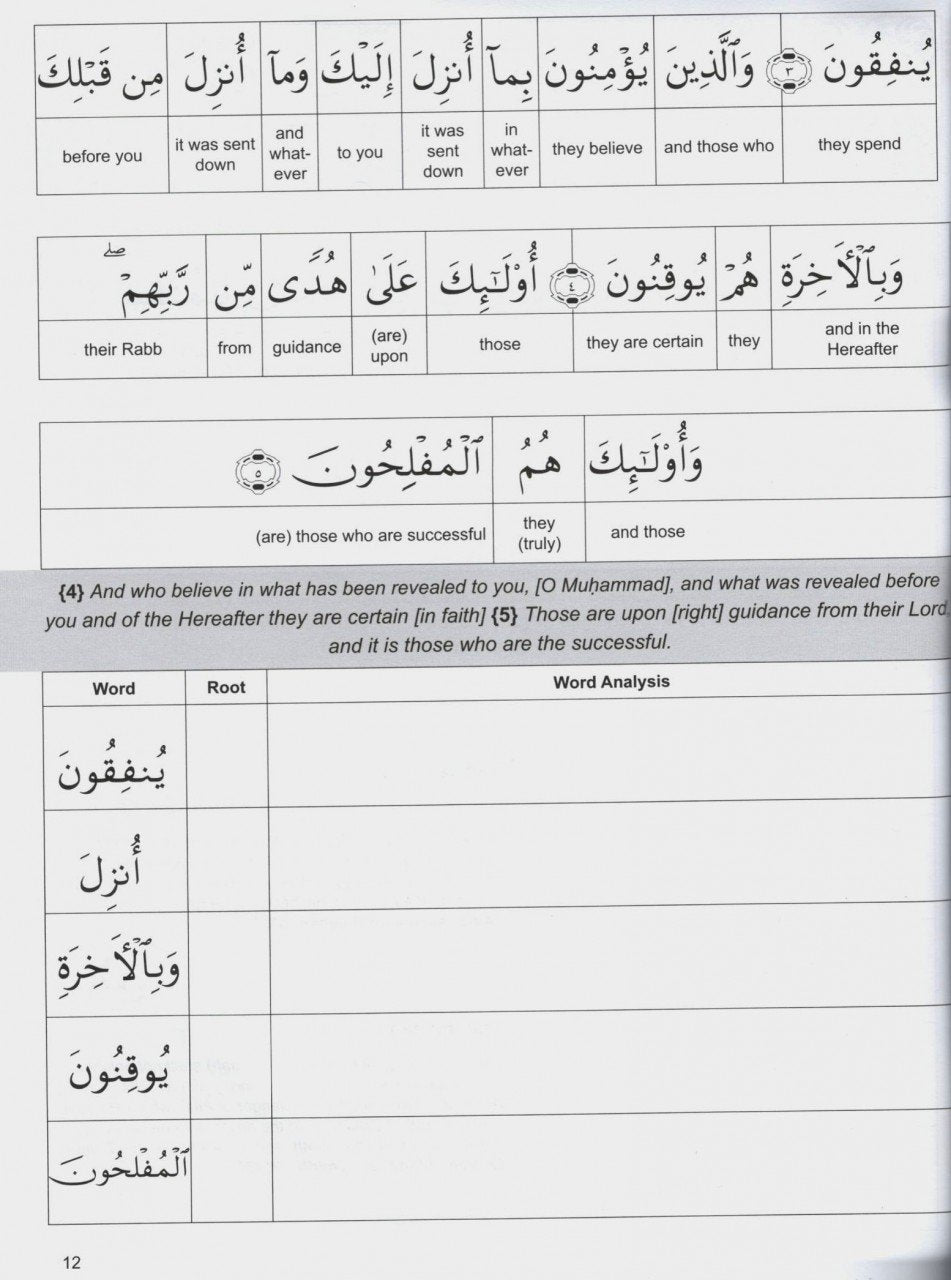 يُنفِقُونَ ٣ وَٱلَّذِينَ يُؤْمِنُونَ بِمَآ أُنزِلَ إِلَيْكَ وَمَآ أُنزِلَ مِن قَبْلِكَ
before you | it was sent down | and what-ever | to you | it was sent down | in what-ever | they believe | and those who | they spend
وَبِٱلْأَخِرَةِ هُمْ يُوقِنُونَ ٤ أُوْلَٰٓئِكَ عَلَىٰ هُدًى مِّن رَّبِّهِمْ ۖ
their Rabb | from | guidance | (are) upon | those | they are certain | they | and in the Hereafter
وَأُوْلَٰٓئِكَ هُمُ ٱلْمُفْلِحُونَ ٥
(are) those who are successful | they (truly) | and those
{4} And who believe in what has been revealed to you, [O Muḥammad], and what was revealed before
you and of the Hereafter they are certain [in faith] {5} Those are upon [right] guidance from their Lord,
and it is those who are the successful.
Word | Root | Word Analysis
يُنفِقُونَ
أُنزِلَ
وَبِٱلْأَخِرَةِ
يُوقِنُونَ
ٱلْمُفْلِحُونَ
12